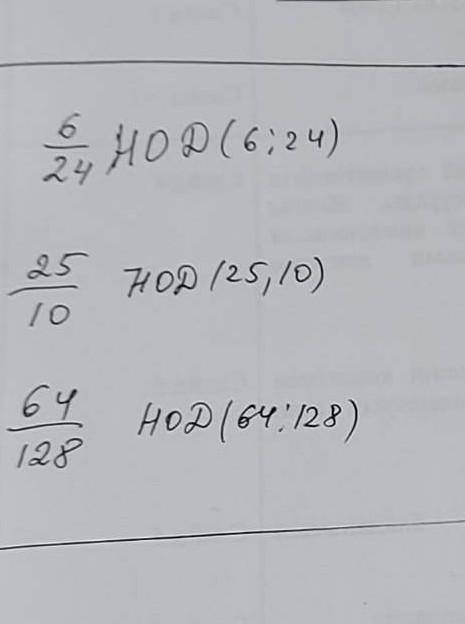 6/24 НОД(6;24)
25/10 НОД(25,10)
64/128 НОД(64;128)